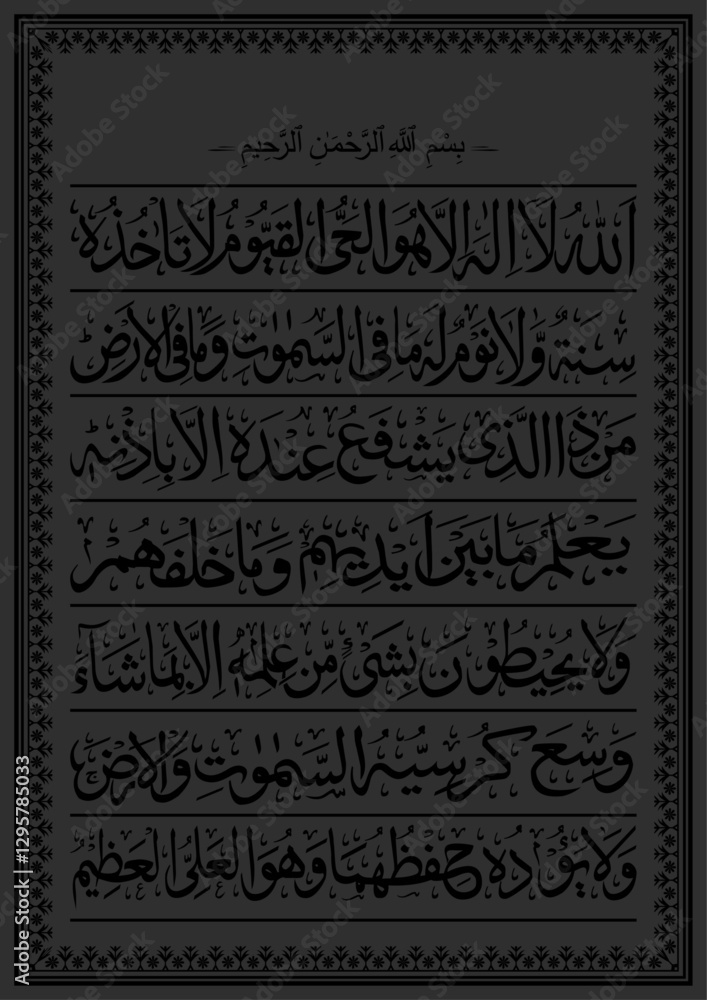 بِسْمِ ٱللَّهِ ٱلرَّحْمَـٰنِ ٱلرَّحِيمِ
اَللّٰهُ لَاۤ اِلٰهَ اِلَّا هُوَ الْحَىُّ الْقَيُّوْمُ لَا تَاْخُذُهٗ
سِنَةٌ وَّلَا نَوْمٌ لَهٗ مَا فِى السَّمٰوٰتِ وَمَا فِى الْاَرْضِؕ
مَنْ ذَا الَّذِىْ يَشْفَعُ عِنْدَهٗۤ اِلَّا بِاِذْنِهٖؕ
يَعْلَمُ مَا بَيْنَ اَيْدِيْهِمْ وَمَا خَلْفَهُمْ
وَلَا يُحِيْطُوْنَ بِشَىْءٍ مِّنْ عِلْمِهٖۤ اِلَّا بِمَا شَآءَ
وَسِعَ كُرْسِيُّهُ السَّمٰوٰتِ وَالْاَرْضَۚ
وَلَا يَـُٔوْدُهٗ حِفْظُهُمَا وَهُوَ الْعَلِىُّ الْعَظِيْمُ
Adobe Stock | #1295785033